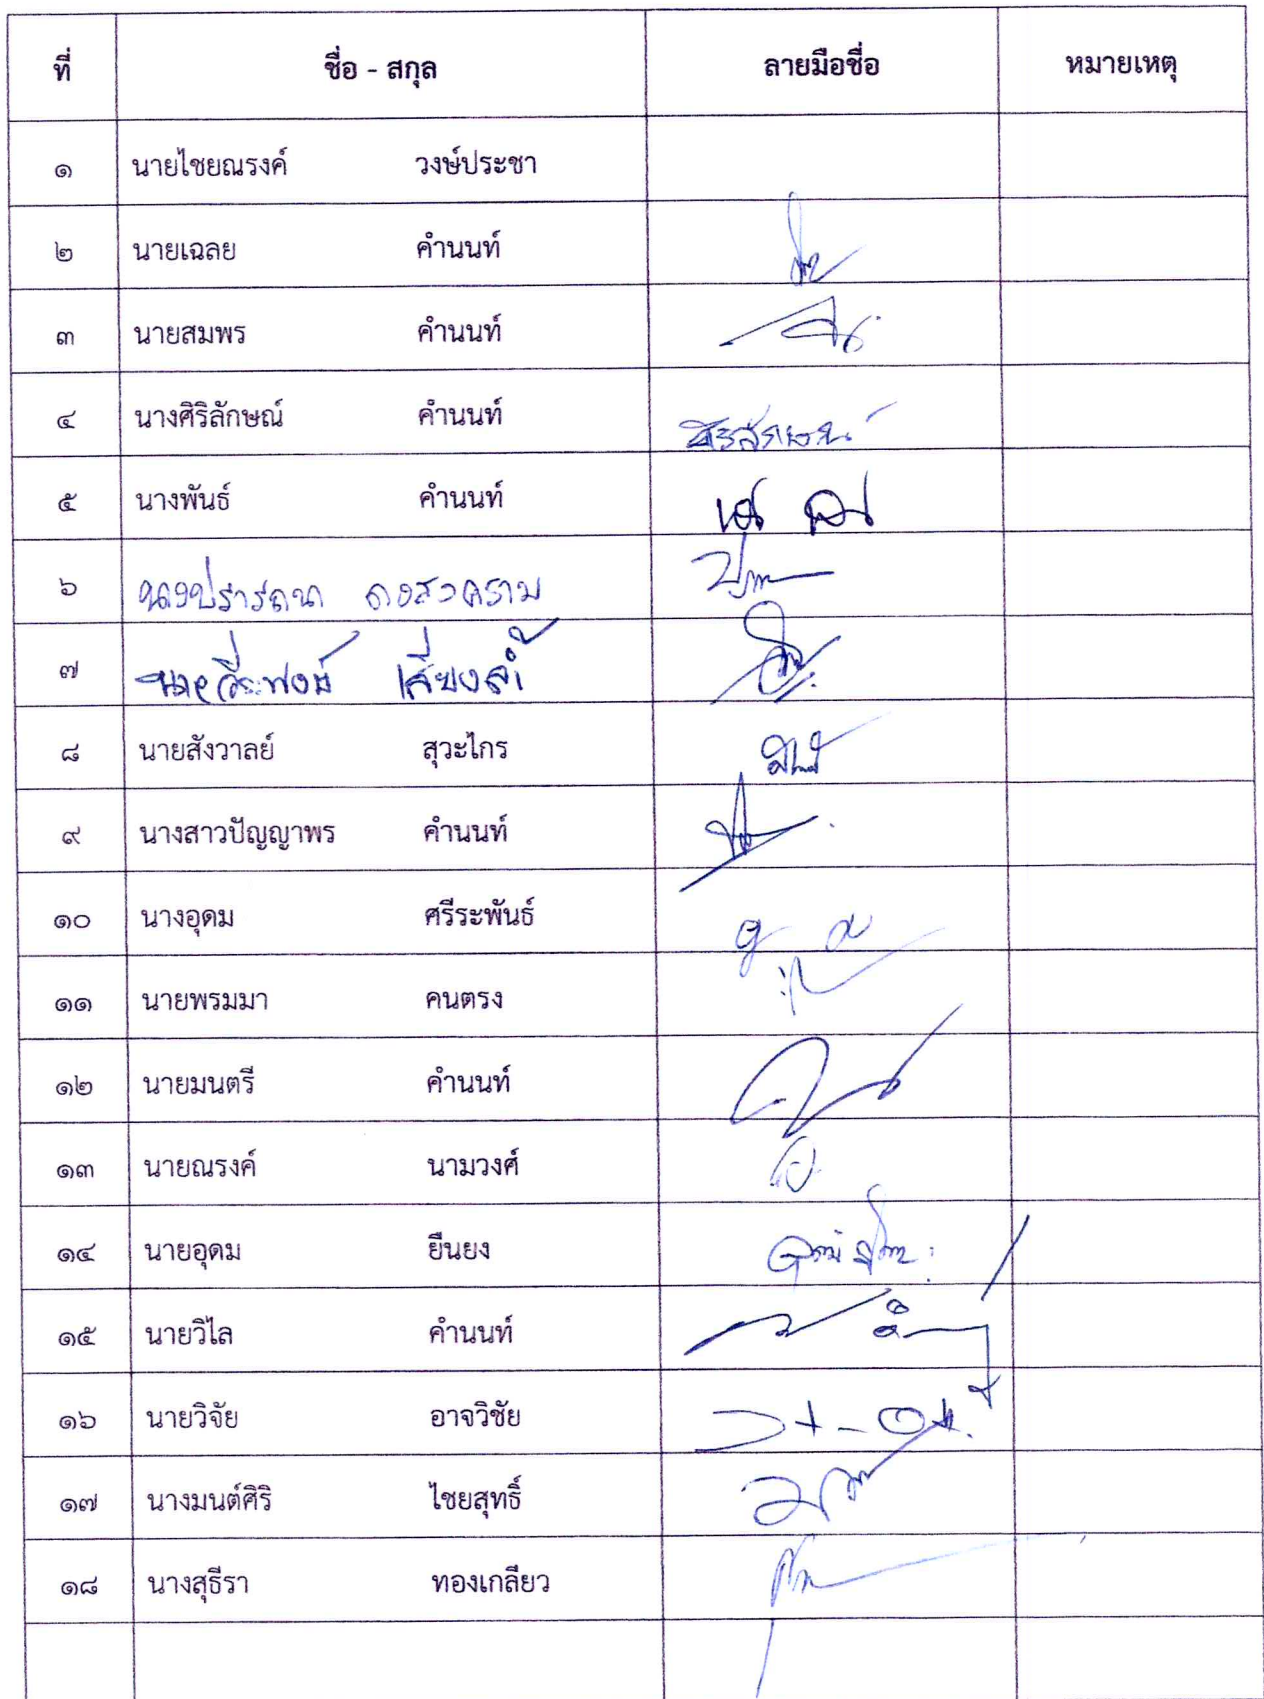 ที่ ชื่อ - สกุล ลายมือชื่อ หมายเหตุ
๑ นายไชยณรงค์ วงษ์ประชา
๒ นายเฉลย คำนนท์
๓ นายสมพร คำนนท์
๔ นางศิริลักษณ์ คำนนท์ ศิริลักษณ์
๕ นางพันธ์ คำนนท์
๖ นางปรารถนา ดงสงคราม
๗ นายวีระพงษ์ เสี่ยงล้ำ
๘ นายสังวาลย์ สุวะไกร
๙ นางสาวปัญญาพร คำนนท์
๑๐ นางอุดม ศรีระพันธ์
๑๑ นายพรมมา คนตรง
๑๒ นายมนตรี คำนนท์
๑๓ นายณรงค์ นามวงศ์
๑๔ นายอุดม ยืนยง
๑๕ นายวิไล คำนนท์
๑๖ นายวิจัย อาจวิชัย
๑๗ นางมนต์ศิริ ไชยสุทธิ์
๑๘ นางสุธีรา ทองเกลียว